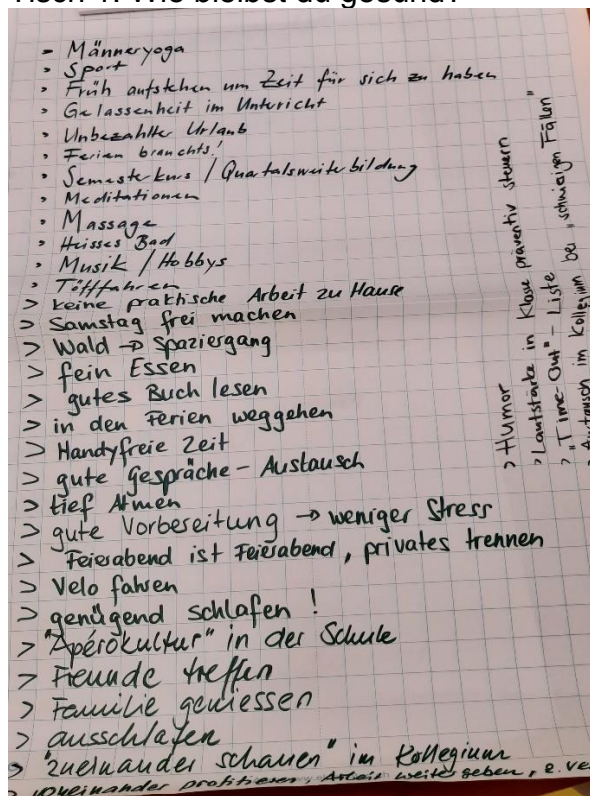 - Männeryoga
• Sport
• Früh aufstehen um Zeit für sich zu haben
• Gelassenheit im Unterricht
• Unbezahlter Urlaub
• Ferien brauchts!
• Semesterkurs / Quartalsweiterbildung
• Meditationen
• Massage
• Heisses Bad
• Musik / Hobbys
• Töfffahren
> keine praktische Arbeit zu Hause
> Samstag frei machen
> Wald → Spaziergang
> fein Essen
> gutes Buch lesen
> in den Ferien weggehen
> Handyfreie Zeit
> gute Gespräche - Austausch
> tief Atmen
> gute Vorbereitung → weniger Stress
> Feierabend ist Feierabend, privates trennen
> Velo fahren
> genügend schlafen !
> "Apérokultur" in der Schule
> Freunde treffen
> Familie geniessen
> ausschlafen
> "zueinander schauen" im Kollegium
> voneinander profitieren, Arbeit weiter geben,
> Humor
> Lautstärke in Klasse präventiv steuern
> "Time-Out" - Liste
> Austausch im Kollegium bei "schwierigen Fällen"